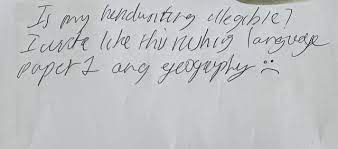 Is my handwriting illegible?
I wrote like this in language
paper 1 and geography :(